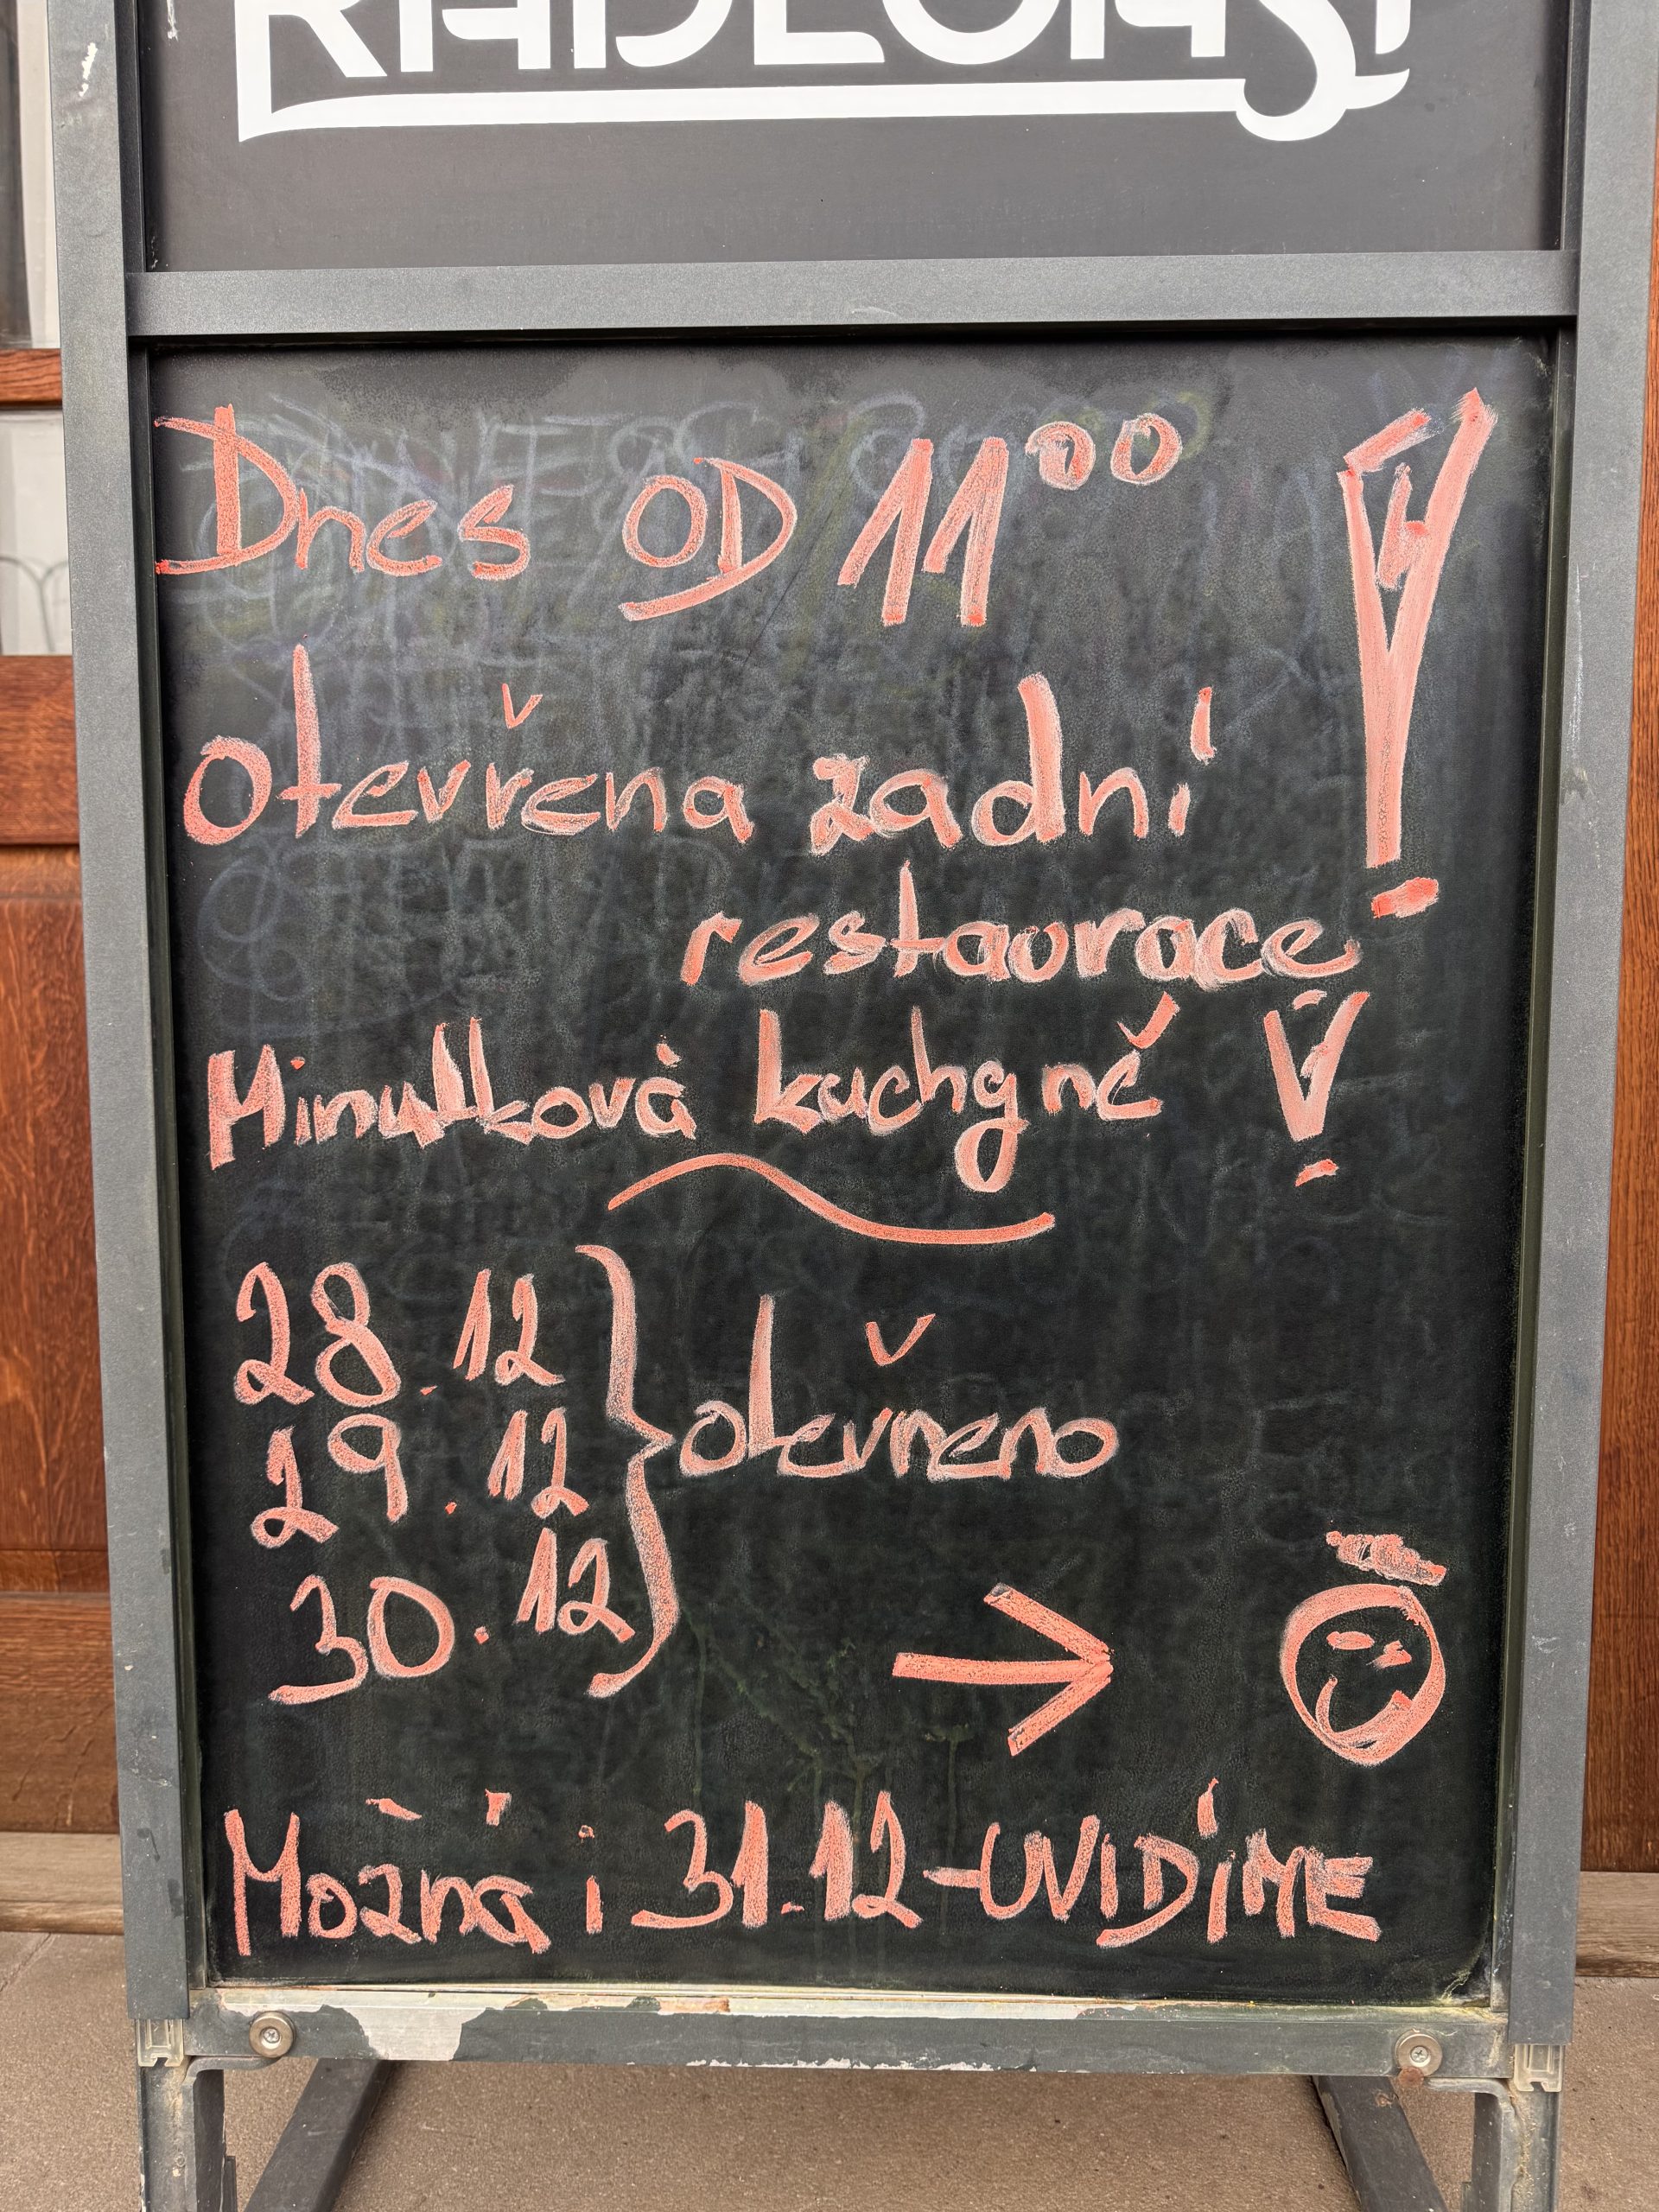 RADEGAST
Dnes OD 11⁰⁰ !
otevřena zadní
restaurace
Minutková kuchyně !
28.12
29.12
30.12
} otevřeno
→
Možná i 31.12-UVIDÍME